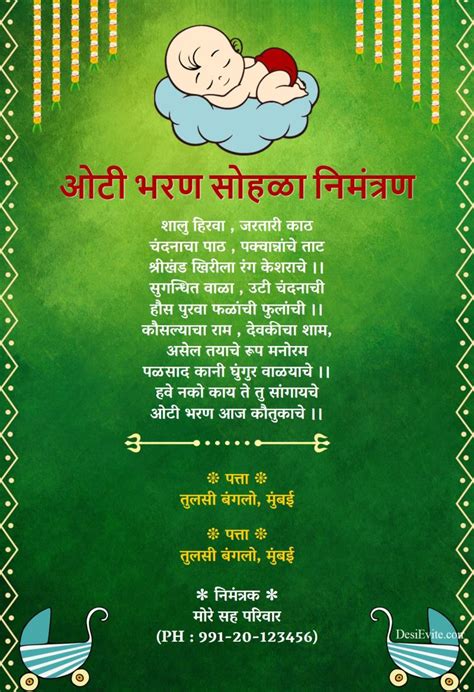 ओटी भरण सोहळा निमंत्रण
शालु हिरवा , जरतारी काठ
चंदनाचा पाठ , पक्वान्नांचे ताट
श्रीखंड खिरीला रंग केशराचे ।।
सुगन्धित वाळा , उटी चंदनाची
हौस पुरवा फळांची फुलांची ।।
कौसल्याचा राम , देवकीचा शाम,
असेल तयाचे रूप मनोरम
पळसाद कानी घुंगुर वाळयाचे ।।
हवे नको काय ते तु सांगायचे
ओटी भरण आज कौतुकाचे ।।
❊ पत्ता ❊
तुलसी बंगलो, मुंबई
❊ पत्ता ❊
तुलसी बंगलो, मुंबई
❊ निमंत्रक ❊
मोरे सह परिवार
(PH : 991-20-123456)
DesiEvite.com